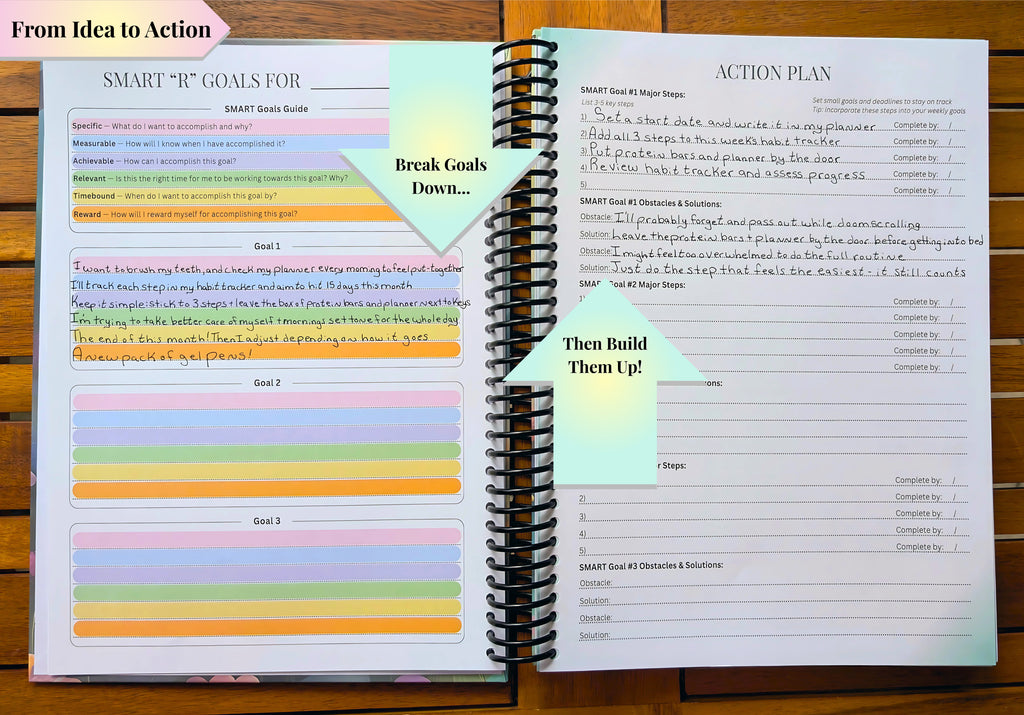 From Idea to Action
SMART “R” GOALS FOR
SMART Goals Guide
Specific – What do I want to accomplish and why?
Measurable – How will I know when I have accomplished it?
Achievable – How can I accomplish this goal?
Relevant – Is this the right time for me to be working towards this goal? Why?
Timebound – When do I want to accomplish this goal by?
Reward – How will I reward myself for accomplishing this goal?
Break Goals
Down...
Goal 1
I want to brush my teeth, and check my planner every morning to feel put-together
I'll track each step in my habit tracker and aim to hit 15 days this month
Keep it simple: stick to 3 steps + leave the box of protein bars and planner next to keys
I'm trying to take better care of myself + mornings set tone for the whole day
The end of this month! Then I adjust depending on how it goes
A new pack of gel pens!
Goal 2
Goal 3
ACTION PLAN
SMART Goal #1 Major Steps:
List 3-5 key steps
Set small goals and deadlines to stay on track
Tip: incorporate these steps into your weekly goals
1) Set a start date and write it in my planner Complete by: /
2) Add all 3 steps to this week's habit tracker Complete by: /
3) Put protein bars and planner by the door Complete by: /
4) Review habit tracker and assess progress Complete by: /
5) Complete by: /
SMART Goal #1 Obstacles & Solutions:
Obstacle: I'll probably forget and pass out while doomscrolling
Solution: Leave the protein bars + planner by the door before getting into bed
Obstacle: I might feel too overwhelmed to do the full routine
Solution: Just do the step that feels the easiest - it still counts
SMART Goal #2 Major Steps:
1) Complete by: /
Complete by: /
Complete by: /
Complete by: /
Complete by: /
Then Build
Them Up!
Steps:
Complete by: /
2) Complete by: /
3) Complete by: /
4) Complete by: /
5) Complete by: /
SMART Goal #3 Obstacles & Solutions:
Obstacle:
Solution:
Obstacle:
Solution: